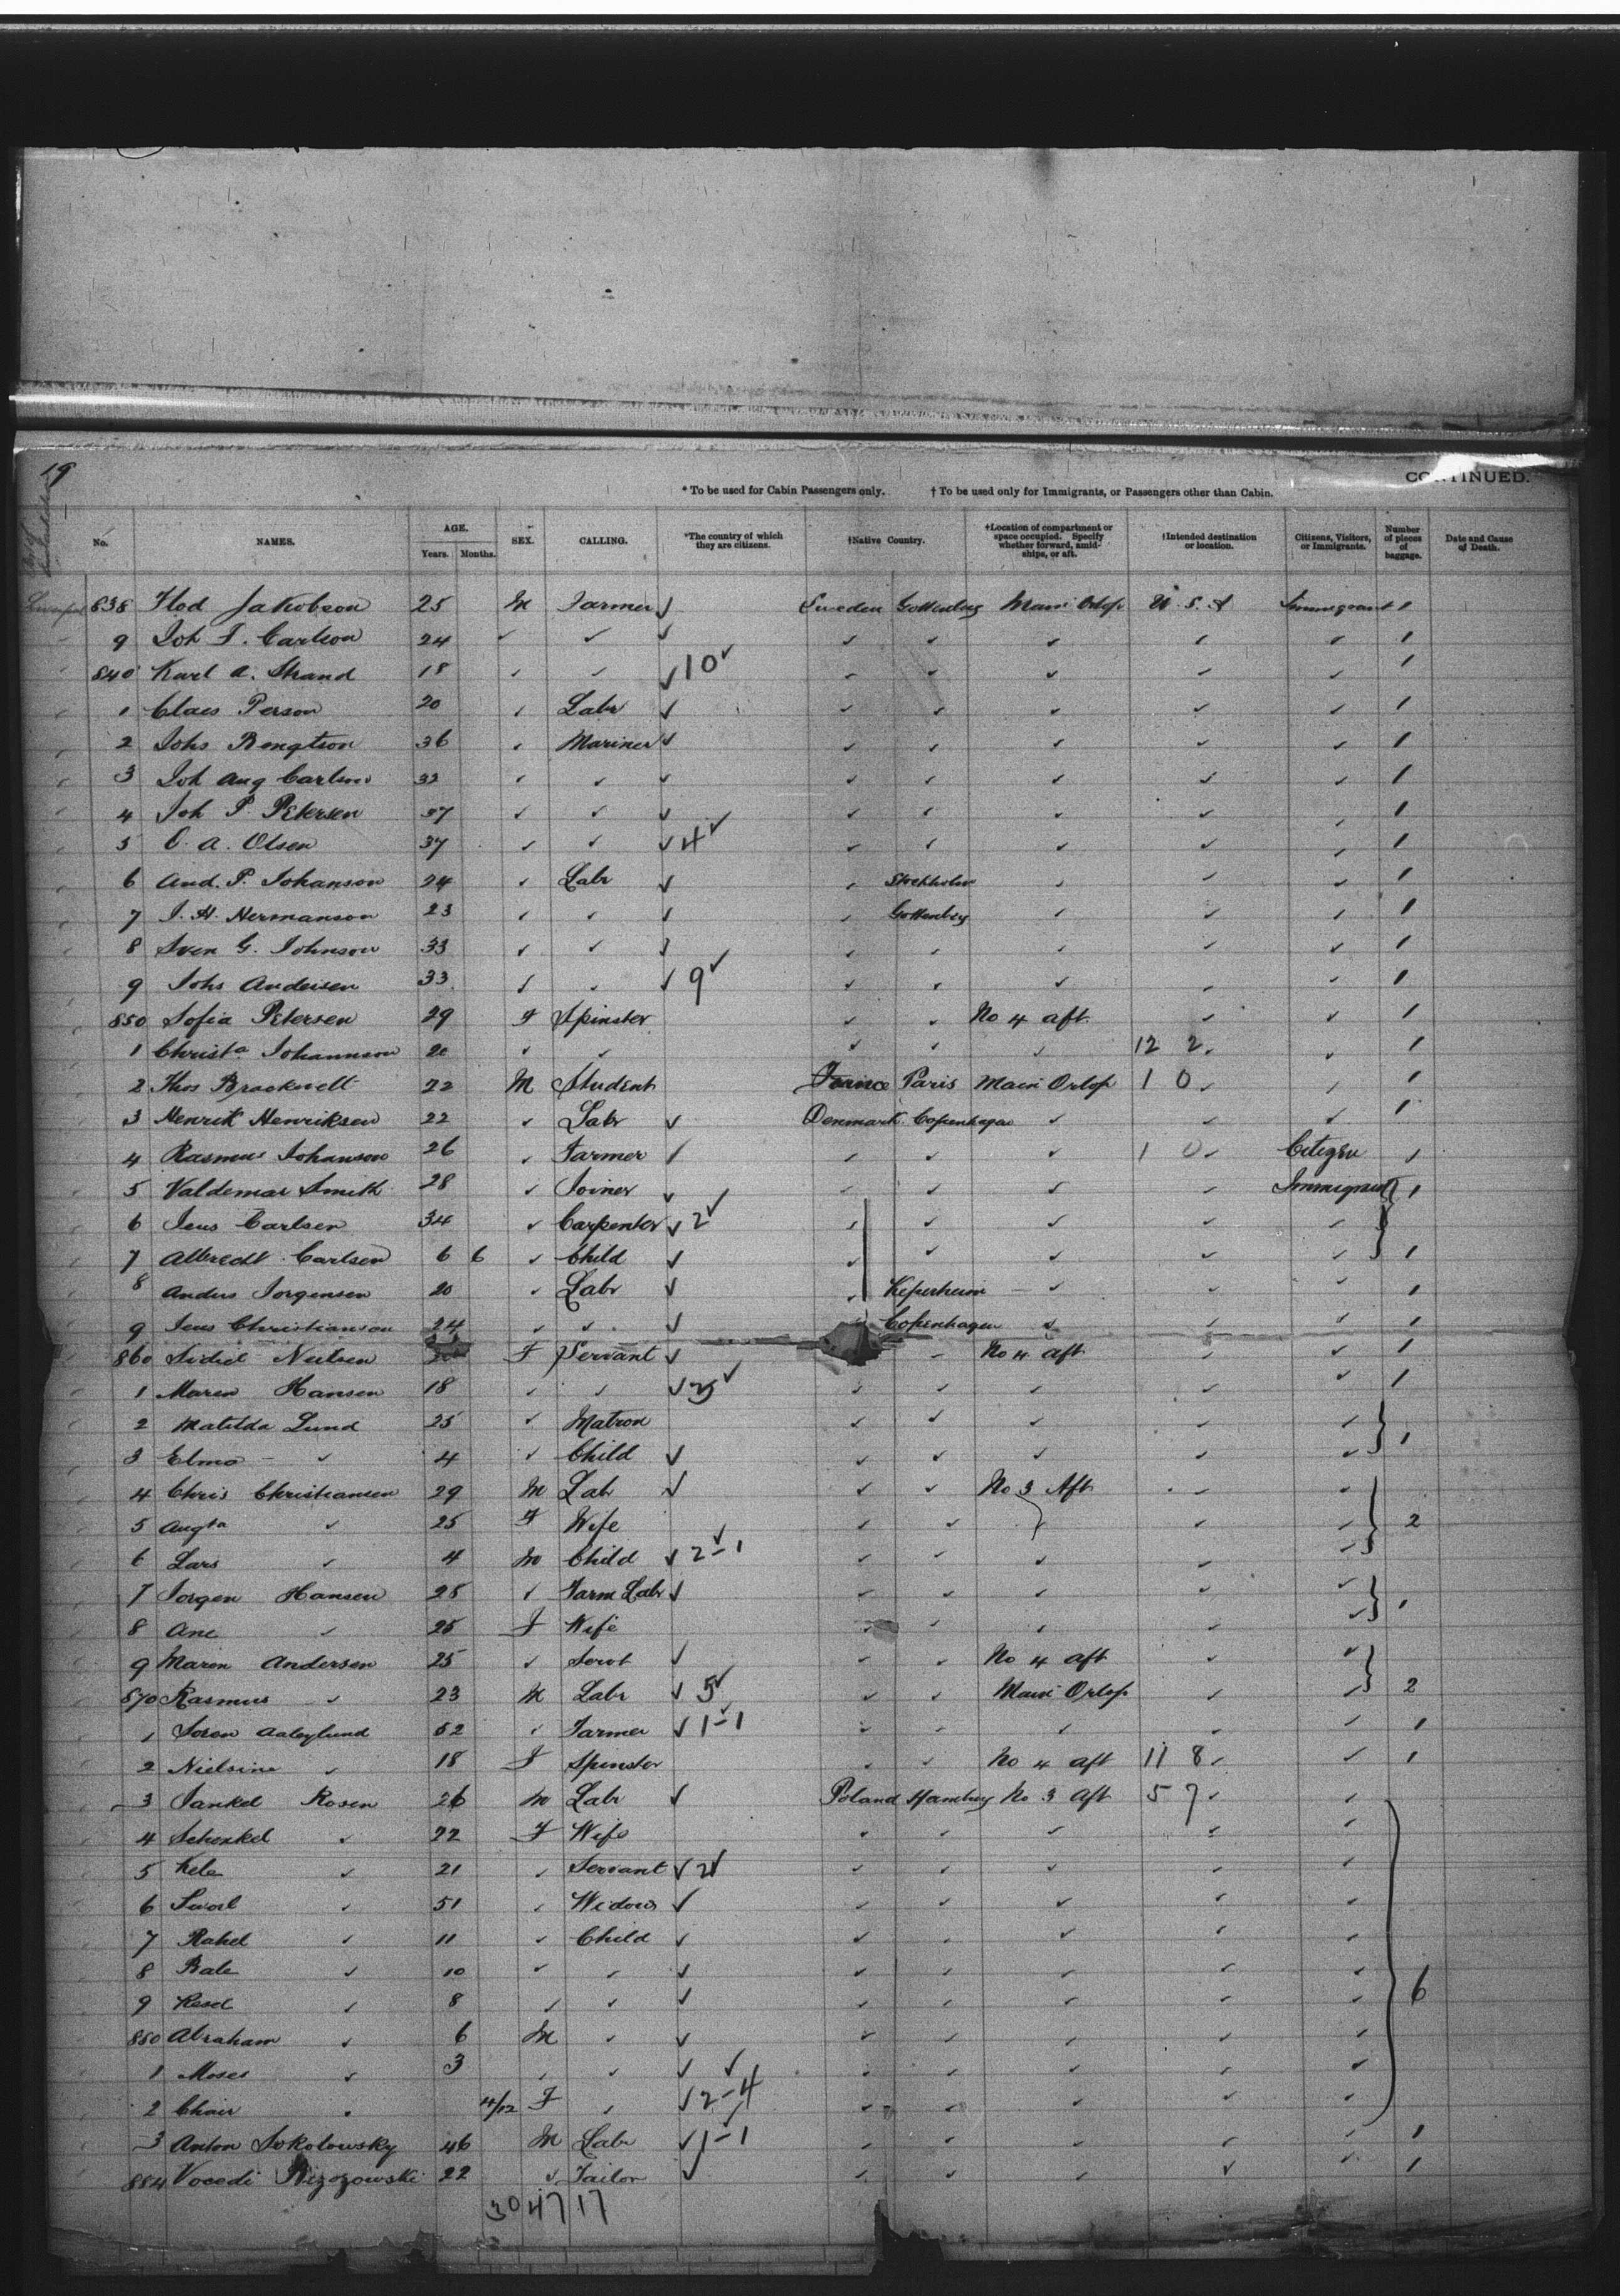 19
CONTINUED.
* To be used for Cabin Passengers only. † To be used only for Immigrants, or Passengers other than Cabin.
No. NAMES. AGE. Years. Months. SEX. CALLING. *The country of which they are citizens. †Native Country. †Location of compartment or space occupied. Specify whether forward, amidships, or aft. †Intended destination or location. Citizens, Visitors, or Immigrants. Number of pieces of baggage. Date and Cause of Death.
838 Flod Jakobson 25 M Farmer ✓ Sweden Gottenberg Main Orlop U.S.A Immigrant 1
9 Joh F. Carlson 24 ✓ ✓ ✓ ✓ ✓ ✓ ✓ ✓ 1
840 Karl A. Strand 18 ✓ ✓ ✓ 10 ✓ ✓ ✓ ✓ ✓ ✓ 1
1 Claes Person 20 ✓ Labr ✓ ✓ ✓ ✓ ✓ ✓ 1
2 Johs Bengtson 36 ✓ Mariner ✓ ✓ ✓ ✓ ✓ ✓ 1
3 Joh Aug Carlson 32 ✓ ✓ ✓ ✓ ✓ ✓ ✓ ✓ 1
4 Joh P. Petersen 37 ✓ ✓ ✓ ✓ ✓ ✓ ✓ ✓ 1
5 O. A. Olsen 37 ✓ ✓ ✓ 4 ✓ ✓ ✓ ✓ ✓ ✓ 1
6 And. P. Johanson 24 ✓ Labr ✓ ✓ Stockholm ✓ ✓ ✓ 1
7 J. H. Hermanson 23 ✓ ✓ ✓ ✓ Gottenberg ✓ ✓ ✓ 1
8 Sven G. Johnson 33 ✓ ✓ ✓ ✓ ✓ ✓ ✓ ✓ 1
9 Johs Andersen 33 ✓ ✓ ✓ 9 ✓ ✓ ✓ ✓ ✓ ✓ 1
850 Sofia Petersen 29 F Spinster ✓ ✓ No 4 aft ✓ ✓ 1
1 Christa Johannson 20 ✓ ✓ ✓ ✓ ✓ 12 2 ✓ ✓ 1
2 Thos Brackwell 22 M Student France Paris Main Orlop 1 0 ✓ ✓ 1
3 Henrik Henriksen 22 ✓ Labr ✓ Denmark Copenhagen ✓ ✓ ✓ 1
4 Rasmus Johanson 26 ✓ Farmer ✓ ✓ ✓ ✓ 1 0 ✓ Citizen 1
5 Valdemar Smith 28 ✓ Joiner ✓ ✓ ✓ ✓ ✓ Immigrant 1
6 Jens Carlsen 34 ✓ Carpenter ✓ 2 ✓ ✓ ✓ ✓ ✓ ✓
7 Albrecht Carlsen 6 6 ✓ Child ✓ ✓ ✓ ✓ ✓ ✓ 1
8 Anders Jorgensen 20 ✓ Labr ✓ ✓ ✓ ✓ ✓ 1
9 Jens Christianson 24 ✓ ✓ ✓ Copenhagen ✓ ✓ ✓ 1
860 Neilsen F Servant ✓ ✓ No 4 aft ✓ ✓ 1
1 Maren Hansen 18 ✓ ✓ ✓ ✓ ✓ ✓ ✓ ✓ ✓ 1
2 Matilda Lund 25 ✓ Matron ✓ ✓ ✓ ✓ ✓
3 Elma ✓ 4 ✓ Child ✓ ✓ ✓ ✓ ✓ ✓ 1
4 Chris Christiansen 29 M Lab ✓ ✓ ✓ No 3 Aft ✓ ✓
5 Augta ✓ 25 F Wife ✓ ✓ ✓ ✓ 2
6 Lars ✓ 4 M Child ✓ 2-1 ✓ ✓ ✓ ✓ ✓ ✓
7 Jorgen Hansen 28 ✓ Farm Labr ✓ ✓ ✓ ✓ ✓ ✓ 1
8 Ane ✓ 25 F Wife ✓ ✓ ✓ ✓ ✓
9 Maren Andersen 25 ✓ Servt ✓ ✓ ✓ No 4 aft ✓ ✓
870 Rasmus ✓ 23 M Labr ✓ 5 ✓ ✓ ✓ Main Orlop ✓ ✓ 2
1 Soren Aabylund 52 ✓ Farmer ✓ 1-1 ✓ ✓ ✓ ✓ ✓ ✓ 1
2 Nielsine ✓ 18 F Spinster ✓ ✓ No 4 aft 11 8 ✓ ✓ 1
3 Jankel Rosen 26 M Labr ✓ Poland Hamburg No 3 Aft 5 7 ✓ ✓
4 Schenkel ✓ 22 F Wife ✓ ✓ ✓ ✓ ✓
5 Kele ✓ 21 ✓ Servant ✓ 2 ✓ ✓ ✓ ✓ ✓ ✓
6 ✓ 51 ✓ Widow ✓ ✓ ✓ ✓ ✓ ✓
7 Rahel ✓ 11 ✓ Child ✓ ✓ ✓ ✓ ✓ ✓
8 Bale ✓ 10 ✓ ✓ ✓ ✓ ✓ ✓ ✓ ✓
9 Resel ✓ 8 ✓ ✓ ✓ ✓ ✓ ✓ ✓ ✓ 6
880 Abraham ✓ 6 M ✓ ✓ ✓ ✓ ✓ ✓ ✓
1 Moses ✓ 3 ✓ ✓ ✓ ✓ ✓ ✓ ✓ ✓
2 Chair ✓ 11/12 F ✓ ✓ 2-4 ✓ ✓ ✓ ✓ ✓ ✓
3 Anton Sokolowsky 46 M Labr ✓ 1-1 ✓ ✓ ✓ ✓ ✓ ✓ 1
884 22 ✓ Tailor ✓ ✓ ✓ ✓ ✓ ✓ 1
30 47 17